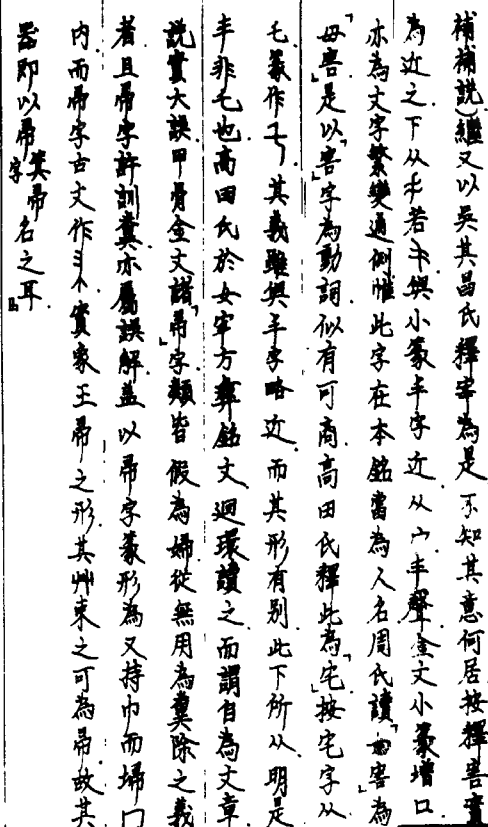 補補說）繼又以吳其昌氏釋宰為是不知其意何居按釋害實
為近之下从丯若丰與小篆丯字近从宀丯聲金文小篆增口
亦為文字繁變通例惟此字在本銘當為人名周氏讀「如害為
毋害」是以「害」字為動詞似有可商高田氏釋此為「宅」按宅字从
乇篆作乇其義雖與丯字略近而其形有別此下所从明是
丯非乇也高田氏於女宰方彝銘文迴環讀之而謂自為文章
說實大誤甲骨金文諸「帚」字類皆假為婦從無用為糞除之義
者且帚字許訓糞亦屬誤解蓋以帚字篆形為又持巾而埽冂
内而帚字古文作實象王帚之形其艸束之可為帚故其
器即以帚字箕帚名之耳」